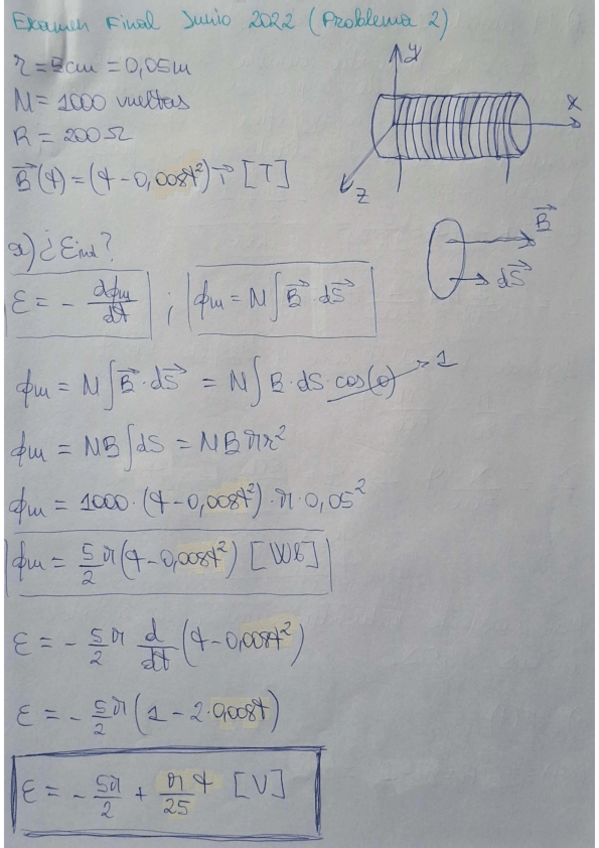 Examen Final Junio 2022 (Problema 2)
r = 5cm = 0,05m
N = 1000 vueltas
R = 200 Ω
B⃗(t) = (t - 0,008t²) i⃗ [T]
y
x
z
B⃗
dS⃗
a) ¿εind?
ε = - dϕm/dt ; ϕm = N ∫ B⃗ dS⃗
ϕm = N ∫ B⃗ · dS⃗ = N ∫ B · dS · cos(0) → 1
ϕm = NB ∫ dS = NBπr²
ϕm = 1000 · (t - 0,008t²) · π · 0,05²
ϕm = 5/2 π (t - 0,008t²) [Wb]
ε = - 5/2 π d/dt (t - 0,008t²)
ε = - 5/2 π (1 - 2·0,008t)
ε = - 5π/2 + πt/25 [V]